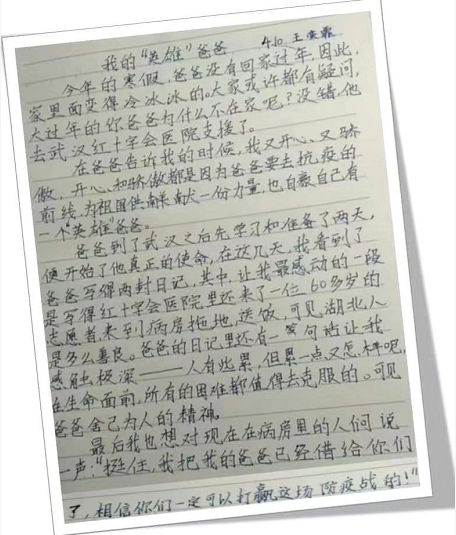 我的“英雄”爸爸 4.10 王
今年的寒假,爸爸没有回家过年,因此,
家里面变得冷冰冰的。大家或许都有疑问,
大过年的你爸爸为什么不在家呢?没错,他
去武汉红十字会医院支援了。
在爸爸告诉我的时候,我又开心,又骄
傲,开心和骄傲都是因为爸爸要去抗疫的
前线,为祖国供献一份力量,也自豪自己有
一个“英雄”爸爸。
爸爸到了武汉之后先学习和准备了两天,
便开始了他真正的使命,在这几天,我看到了
爸爸写得两封日记,其中,让我最感动的一段
是写得红十字会医院里还来了一位60多岁的
志愿者,来到病房拖地,送饭,可见湖北人
是多么善良。爸爸的日记里还有一句话让我
感触极深——人有些累,但累一点又怎样呢,
在生命面前,所有的困难都值得去克服的。可见
爸爸舍己为人的精神。
最后我也想对现在在病房里的人们说
一声:“挺住,我把我的爸爸已经借给你们
了,相信你们一定可以打赢这场防疫战的!”